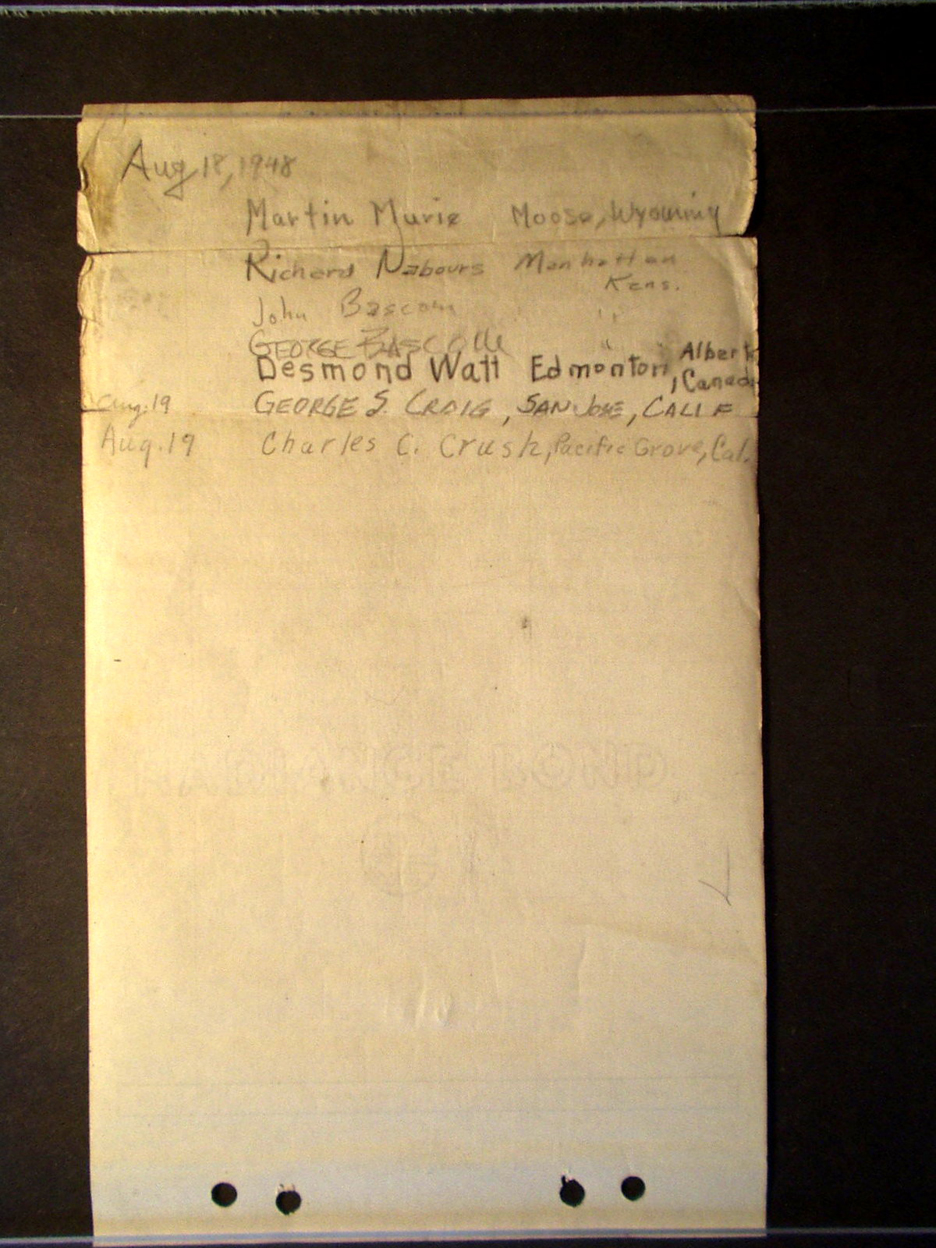 Aug 18, 1948
Martin Murie Moose, Wyoming
Richard Nabours Manhattan
Kans.
John Bascom "
GEORGE BASCOM "
Desmond Watt Edmonton, Albert
, Canad
Aug. 19 GEORGE S. CRAIG, SAN JOSE, CALIF
Aug. 19 Charles C. Crush, Pacific Grove, Cal.
RADIANCE BOND